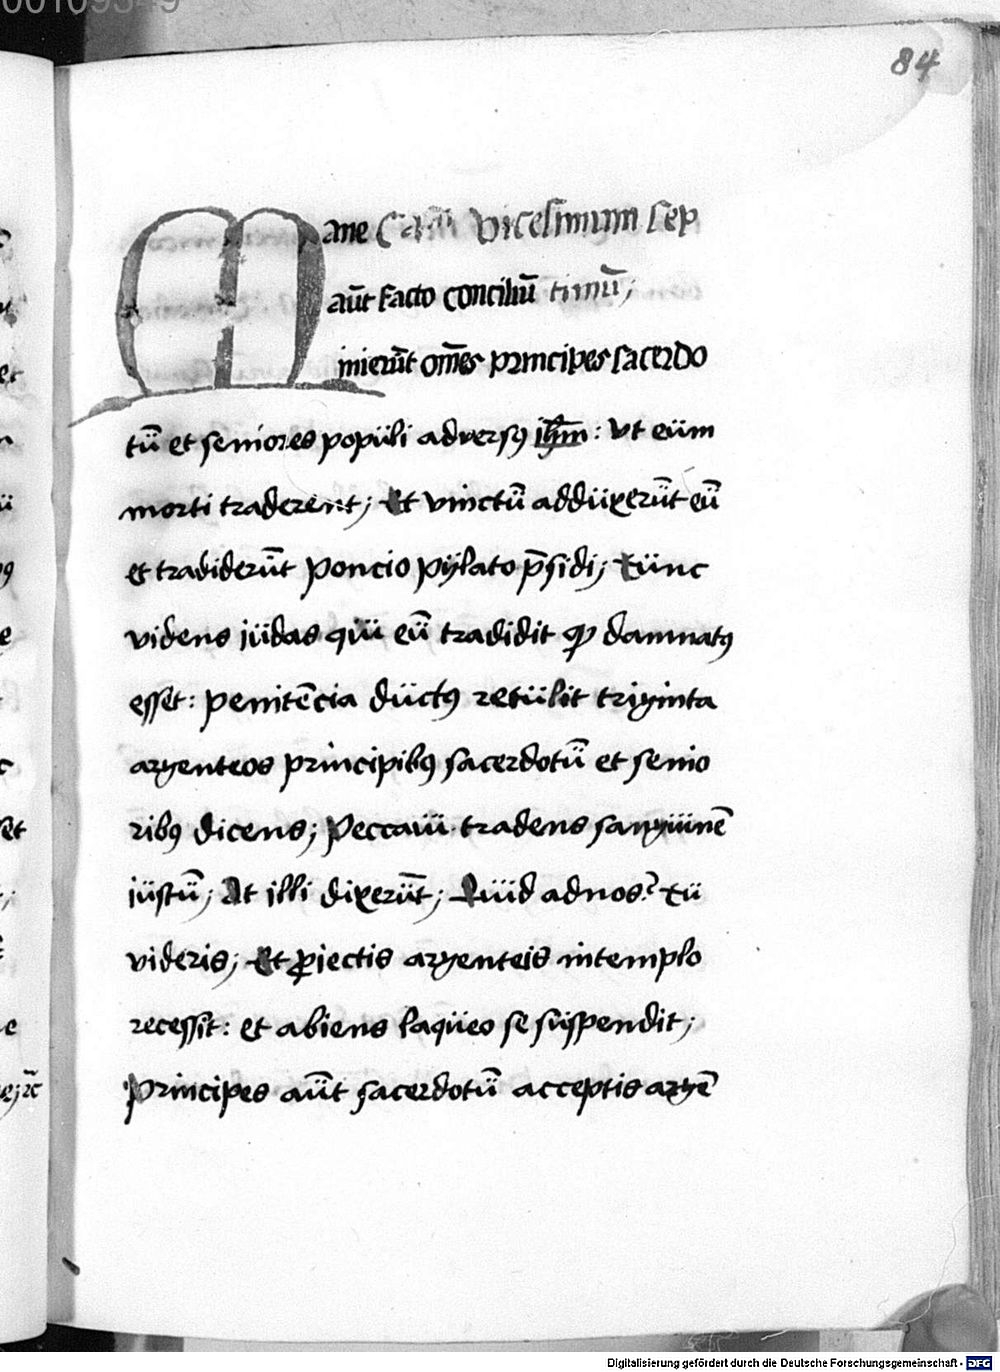 84
Mane Cap̄ Vicesimum sep
aūt facto conciliū timū;
inierūt om̄es principes sacerdo
tū et seniores populi adversꝰ ih̄m: Vt eum
morti traderent; Et vinctū adduxerūt eū
et tradiderūt poncio pylato p̄sidi; Tunc
videns iudas qui eū tradidit ꝙ damnatꝰ
esset: penitēcia ductꝰ retulit triginta
argenteos principibꝰ sacerdotū et senio
ribꝰ dicens; Peccaui tradens sanguinē
iustū; At illi dixerūt; Quid ad nos? Tu
videris; Et ꝓiectis argenteis in templo
recessit: et abiens laqueo se suspendit;
Principes aūt sacerdotū acceptis argē
Digitalisierung gefördert durch die Deutsche Forschungsgemeinschaft - DFG